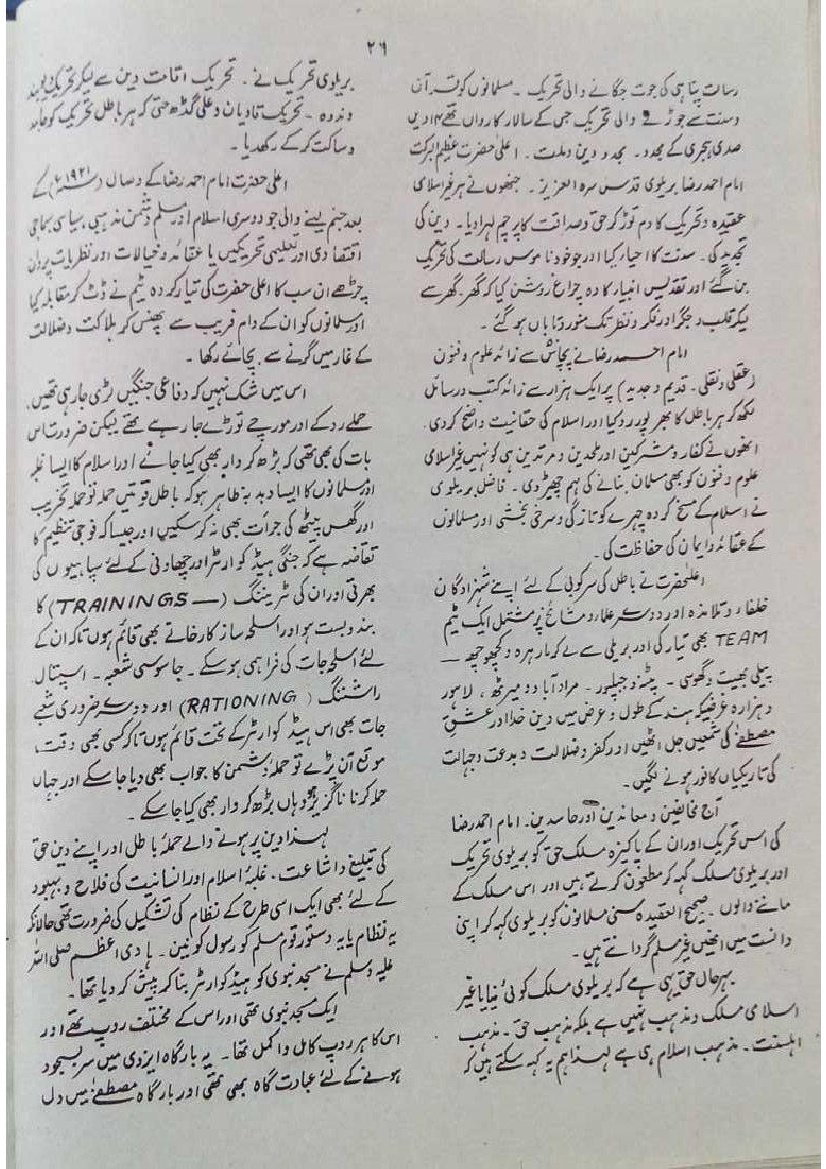 ۲۶
رسالت پناہی کی جوت جگانے والی تحریک ۔ مسلمانوں کو قرآن
وسنت سے جوڑنے والی تحریک جس کے سالار کارواں تھے ۱۴ ویں
صدی ہجری کے مجدد ۔ مجدد دین وملت ۔ اعلیٰ حضرت عظیم البرکت
امام احمد رضا بریلوی قدس سرہ العزیز ۔ جنھوں نے ہر غیر اسلامی
عقیدہ وتحریک کا دم توڑ کر حق وصداقت کا پرچم لہرا دیا ۔ دین کی
تجدید کی ۔ سنت کا احیاء کیا اور جو خود ناموس رسالت کی تحریک
بن گئے اور تقدیس انبیاء کا وہ چراغ روشن کیا کہ گھر گھر سے
لیکر قلب وجگر اور فکر ونظر تک منور وتاباں ہو گئے ۔
امام احمد رضا نے پچاس سے زائد علوم وفنون
(عقلی ونقلی ۔ قدیم وجدید) پر ایک ہزار سے زائد کتب ورسائل
لکھ کر ہر باطل کا بھرپور رد کیا اور اسلام کی حقانیت واضح کردی
انھوں نے کفار ومشرکین اور ملحدین ومرتدین ہی کو نہیں غیر اسلامی
علوم وفنون کو بھی مسلمان بنانے کی مہم چھیڑ دی ۔ فاضل بریلوی
نے اسلام کے مسخ کردہ چہرے کو تازگی وسرخی بخشی اور مسلمانوں
کے عقائد وایمان کی حفاظت کی ۔
اعلحضرت نے باطل کی سرکوبی کے لئے اپنے شہزادگان
خلفاء وتلامذہ اور دوسرے علماء ومشائخ پر مشتمل ایک ٹیم
TEAM بھی تیار کی اور بریلی سے لے کر مارہرہ وکچھوچھہ —
پیلی بھیت وگھوسی ۔ پٹنہ وجبلپور ۔ مرادآباد ومیرٹھ ، لاہور
وہزارہ غرضیکہ ہند کے طول وعرض میں دین خدا اور عشق
مصطفےٰ کی شمعیں جل اٹھیں اور کفر وضلالت وبدعت وجہالت
کی تاریکیاں کافور ہونے لگیں ۔
آج مخالفین ومعاندین اور حاسدین ۔ امام احمد رضا
کی اس تحریک اور ان کے پاکیزہ مسلک حق کو بریلوی تحریک
اور بریلوی مسلک کہہ کر مطعون کرتے ہیں اور اس مسلک کے
ماننے والوں ۔ صحیح العقیدہ سنی مسلمانوں کو بریلوی کہہ کر اپنی
دانست میں انھیں غیر مسلم گردانتے ہیں ۔
بہرحال حق یہی ہے کہ بریلوی مسلک کوئی نیا یا غیر
اسلامی مسلک ومذہب نہیں ہے بلکہ مذہب حق ۔ مذہب
اہلسنت ۔ مذہب اسلام ہی ہے لہذا ہم یہ کہہ سکتے ہیں کہ
بریلوی تحریک نے ۔ تحریک اقامت دین سے لیکر تحریک دیوبند
وندوہ ۔ تحریک قادیان وعلی گڈھ حتی کہ ہر باطل تحریک کو جامد
وساکت کر کے رکھدیا ۔
اعلیٰ حضرت امام احمد رضا کے وصال (۱۹۲۱ء) کے
بعد جنم لینے والی جو دوسری اسلام اور مسلم دشمن مذہبی، سیاسی سماجی
اقتصادی اور تعلیمی تحریکیں یا عقائد وخیالات اور نظریات پروان
چڑھے ان سب کا اعلیٰ حضرت کی تیار کردہ ٹیم نے ڈٹ کر مقابلہ کیا
اور مسلمانوں کو ان کے دام فریب سے پھنس کر ہلاکت وضلالت
کے غار میں گرنے سے بچائے رکھا ۔
اس میں شک نہیں کہ دفاعی جنگیں لڑی جارہی تھیں،
حملے روکے اور مورچے توڑے جارہے تھے لیکن ضرورت اس
بات کی بھی تھی کہ بڑھ کر وار بھی کیا جائے اور اسلام کا ایسا غلبہ
اور مسلمانوں کا ایسا دبدبہ ظاہر ہو کہ باطل قوتیں حملہ تو حملہ تخریب
اور گھس پیٹھ کی جرأت بھی نہ کر سکیں اور جیسا کہ فوجی تنظیم کا
تقاضہ ہے کہ جنگی ہیڈ کوارٹر اور چھاونی کے لئے سپاہیوں کی
بھرتی اور ان کی ٹریننگ (TRAININGS —) کا
بندوبست ہو اور اسلحہ ساز کارخانے بھی قائم ہوں تاکہ ان کے
لئے اسلحہ جات کی فراہمی ہو سکے ۔ جاسوسی شعبہ ۔ اسپتال
راشننگ (RATIONING) اور دوسرے ضروری شعبے
جات بھی اس ہیڈ کوارٹر کے تحت قائم ہوں تاکہ کسی بھی وقت،
موقع آن پڑے تو حملۂ دشمن کا جواب بھی دیا جاسکے اور جہاں
حملہ کرنا ناگزیر ہو وہاں بڑھ کر وار بھی کیا جاسکے ۔
لہذا دین پر ہونے والے حملۂ باطل اور اپنے دین حق
کی تبلیغ واشاعت، غلبۂ اسلام اور انسانیت کی فلاح وبہبود
کے لئے بھی ایک اسی طرح کے نظام کی تشکیل کی ضرورت تھی حالانکہ
یہ نظام یا یہ دستور قوم مسلم کو رسول کونین ۔ ہادی اعظم صلی اللہ
علیہ وسلم نے مسجد نبوی کو ہیڈ کوارٹر بنا کر پیش کردیا تھا ۔
ایک مسجد نبوی تھی اور اس کے مختلف روپ تھے اور
اس کا ہر روپ کامل واکمل تھا ۔ یہ بارگاہ ایزدی میں سربسجود
ہونے کے لئے عبادت گاہ بھی تھی اور بارگاہ مصطفےٰ میں دل